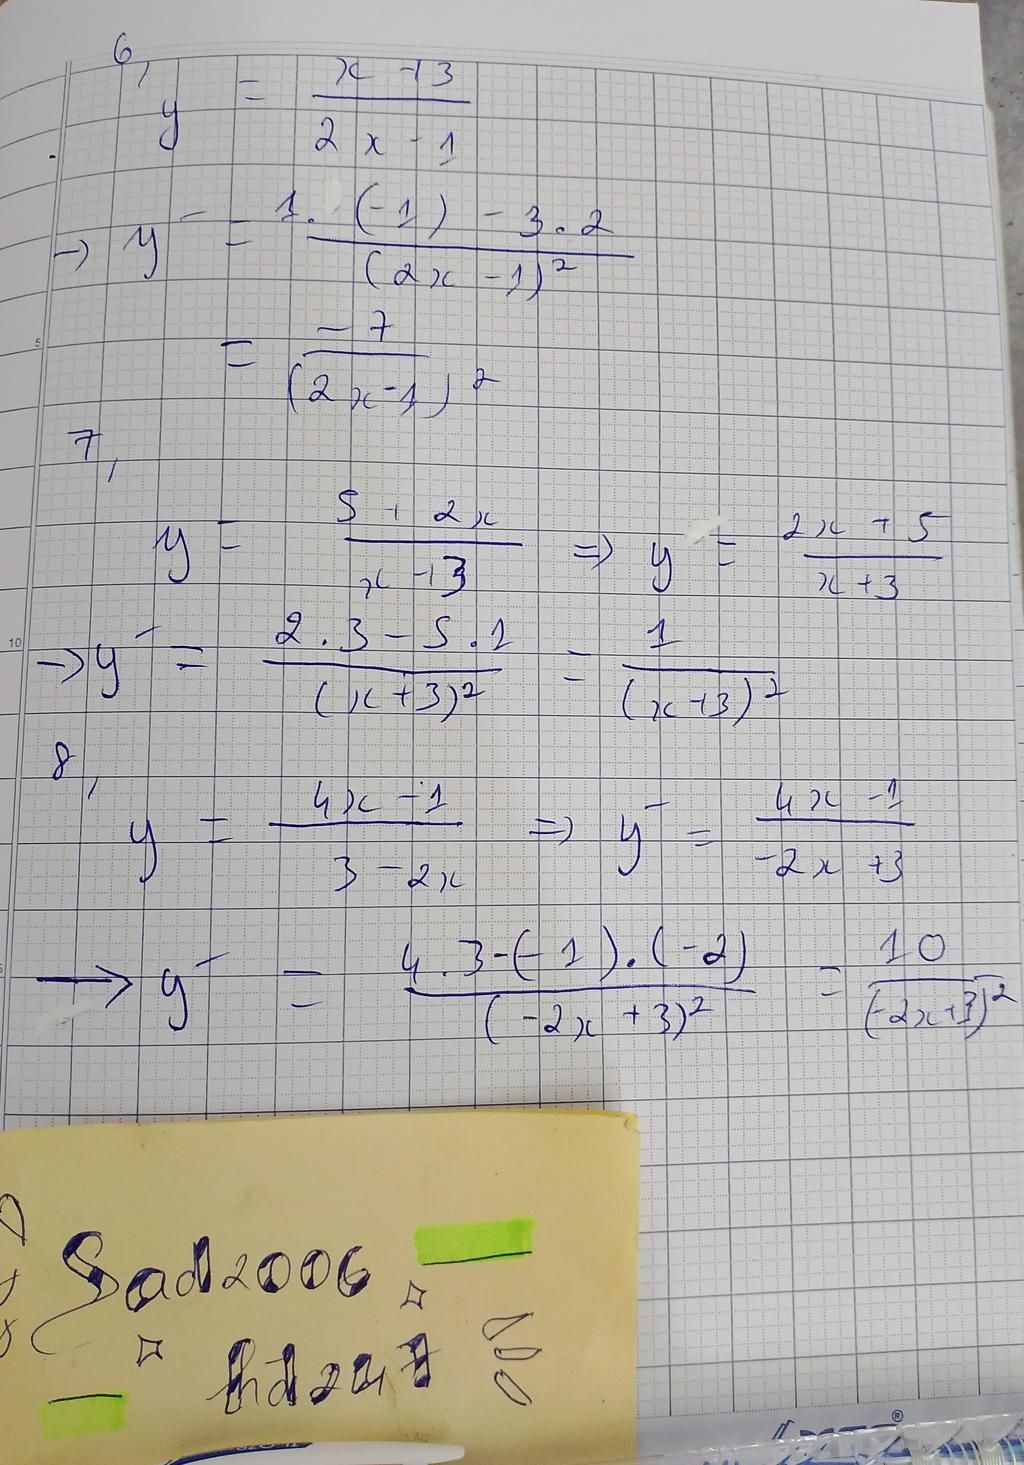 6,
y = x+3 / 2x-1
→ y' = 1.(-1) - 3.2 / (2x-1)²
= -7 / (2x-1)²
7,
y = 5+2x / x+3 ⇒ y = 2x+5 / x+3
→ y' = 2.3-5.1 / (x+3)² = 1 / (x+3)²
8,
y = 4x-1 / 3-2x ⇒ y' = 4x-1 / -2x+3
→ y' = 4.3-(-1).(-2) / (-2x+3)² = 10 / (-2x+3)²
5
10
Sad2006
hd247